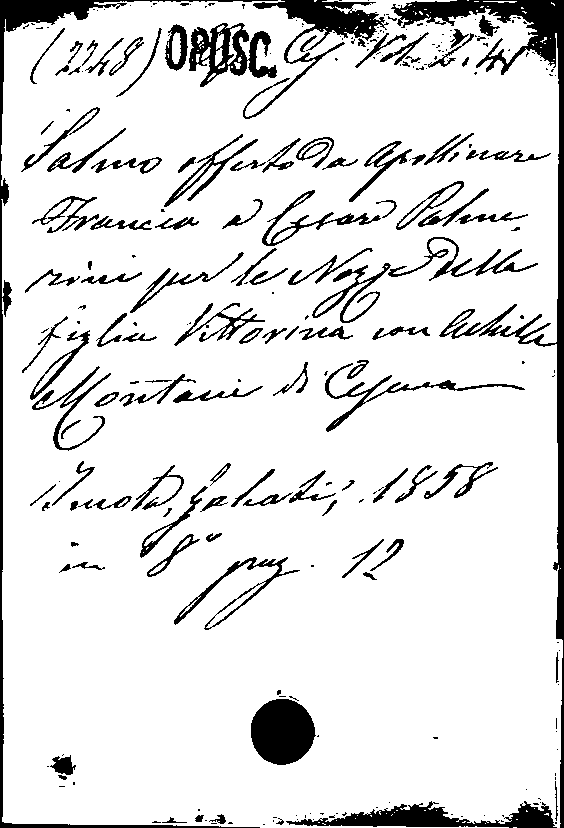 (2248) OPUSC. Ces. Vol. 2. 41
Salmo offerto da Apollinare
Francia a Cesare Palme
rini per le Nozze della
figlia Vittorina con Achille
Montani di Cesena
Imola, Galeati, 1858
in 8° pag. 12